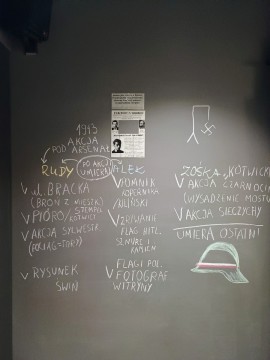 1943
AKCJA
POD ARSENAŁEM
RUDY
PO AKCJI
UMIERA
ALEK
ZOŚKA
KOTWICA
V ul. BRACKA
(BROŃ Z MIESZK)
V PIÓRO/STEMPEL
KOTWICY
V AKCJA SYLWESTR
(POCIĄG = TORY)
V RYSUNEK
ŚWIN
V POMNIK
KOPERNIKA
KILIŃSKI
V ZRYWANIE
FLAG HITL.
SZNUREK I
KAMIEŃ
FLAGI POL.
V FOTOGRAF
WITRYNY
V AKCJA CZARNOCIN
(WYSADZENIE MOSTU)
V AKCJA SIECZYCHY
UMIERA OSTATNI